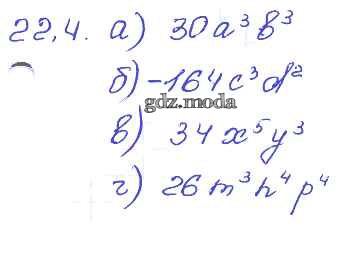 22,4. а) 30a³b³
б) -164c³d²
gdz.moda
в) 34x⁵y³
г) 26m³n⁴p⁴